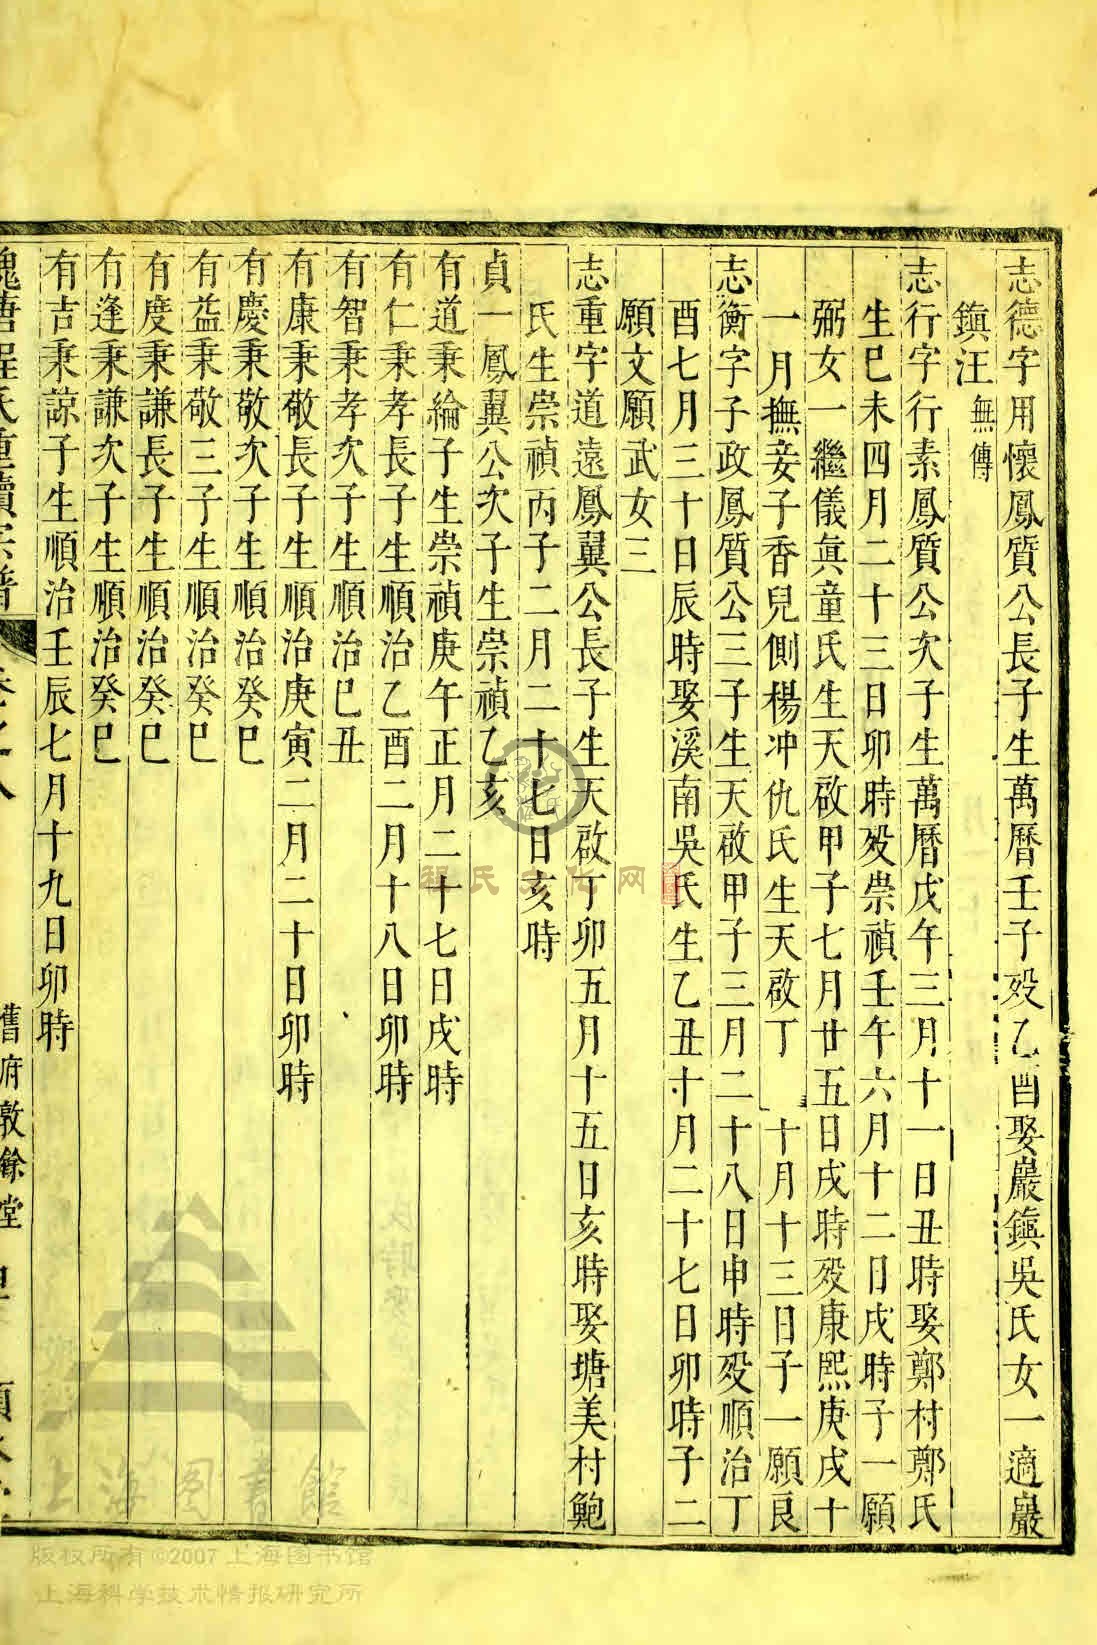 志德字用懷鳳質公長子生萬曆壬子歿乙酉娶巖鎮吳氏女一適巖
鎮汪無傳
志行字行素鳳質公次子生萬曆戊午三月十一日丑時娶鄭村鄭氏
生己未四月二十三日卯時歿崇禎壬午六月十二日戌時子一願
弼女一繼儀眞童氏生天啟甲子七月廿五日戌時歿康熙庚戌十
一月撫妾子香兒側楊冲仇氏生天啟丁 十月十三日子一願良
志衡字子政鳳質公三子生天啟甲子三月二十八日申時歿順治丁
酉七月三十日辰時娶溪南吳氏生乙丑十月二十七日卯時子二
願文願武女三
志重字道遠鳳翼公長子生天啟丁卯五月十五日亥時娶塘美村鮑
氏生崇禎丙子二月二十七日亥時
貞一鳳翼公次子生崇禎乙亥
有道秉綸子生崇禎庚午正月二十七日戌時
有仁秉孝長子生順治乙酉二月十八日卯時
有智秉孝次子生順治己丑
有康秉敬長子生順治庚寅二月二十日卯時
有慶秉敬次子生順治癸巳
有益秉敬三子生順治癸巳
有度秉謙長子生順治癸巳
有逢秉謙次子生順治癸巳
有吉秉諒子生順治壬辰七月十九日卯時
槐塘程氏重續宗譜 卷之八 舊府敦餘堂
程氏文化网
上海图書館
版权所有©2007上海图书馆
上海科学技术情报研究所